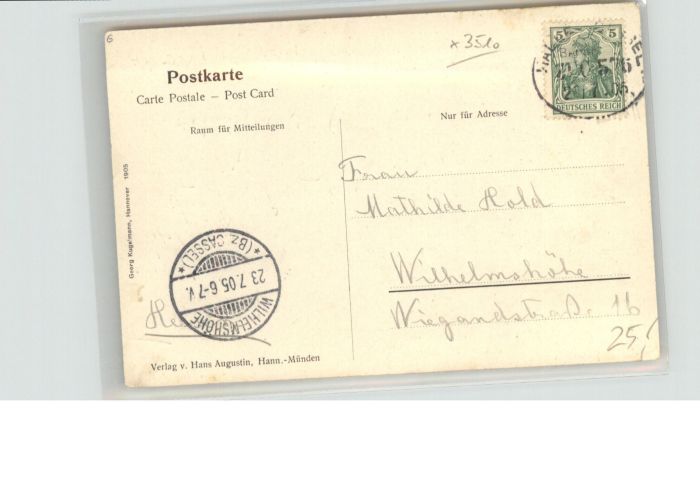 6
* 3510
Postkarte
Carte Postale – Post Card
Raum für Mitteilungen
Nur für Adresse
5 5
DEUTSCHES REICH
Georg Kugelmann, Hannover 1905
Frau
Mathilde Hold
Wilhelmshöhe
Wiegandstraße 16
25,
*(BZ. CASSEL)*
23.7.05.6-7V.
WILHELMSHÖHE
Verlag v. Hans Augustin, Hann.-Münden